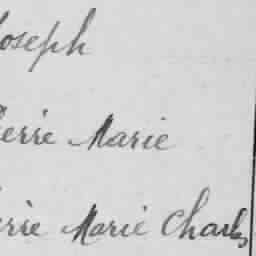 Joseph
Pierre Marie
Pierre Marie Charles